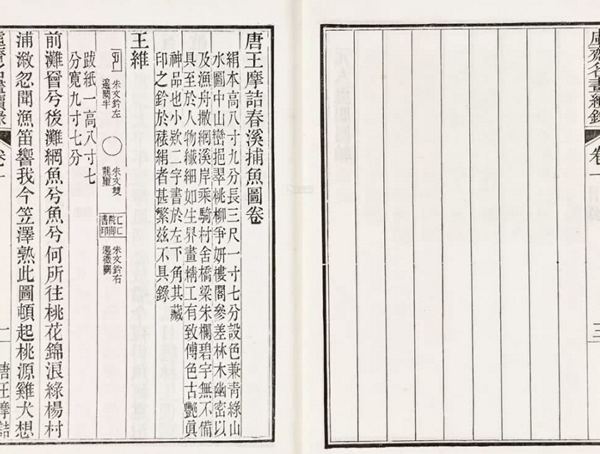 虛齋名畫續錄
卷一
三
唐王摩詰春溪捕魚圖卷
絹本高八寸九分長三尺一寸七分設色兼青綠山
水圖中山巒挹翠桃柳爭妍樓閣參差林木幽密以
及漁舟撒網溪岸乘騎村舍橋梁朱欄碧宇無不備
具至於人物纖細如生界畫精工有致傅色古艷眞
神品也小欵二字書於左下角其藏
印之鈐於裱絹者甚繁茲不具錄
王維
朱文鈐右
朱文雙
龍璽
朱文鈐左
邊闕半
跋紙一高八寸七
分寬九寸七分
前灘罾兮後灘網魚兮魚兮何所往桃花錦浪綠楊村
浦溆忽聞漁笛響我今笠澤熟此圖頓起桃源雞犬想
虛齋名畫續錄
卷一
一
唐王摩詰